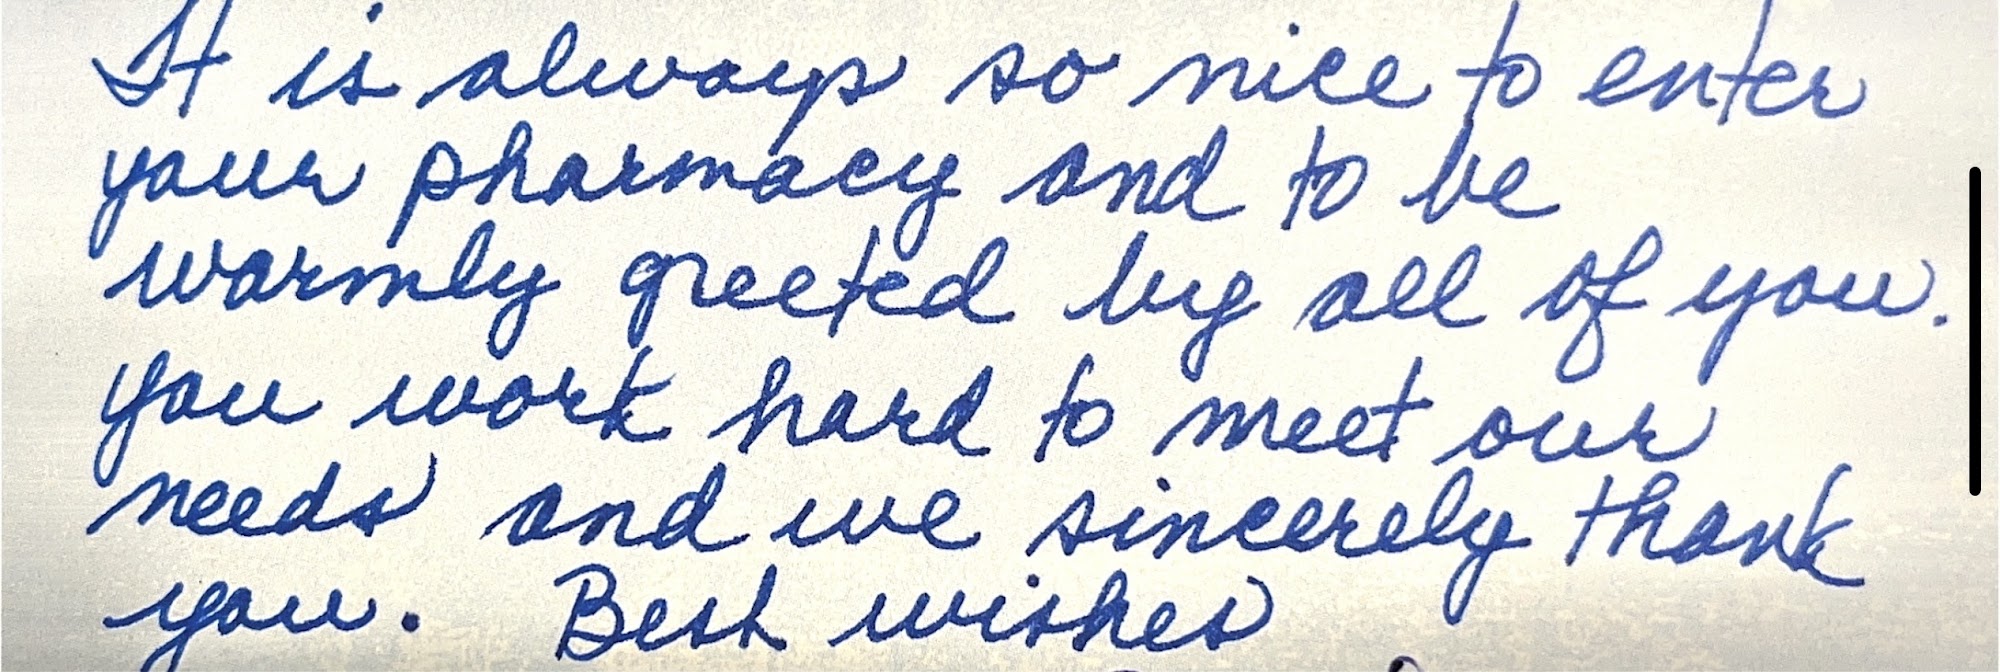 It is always so nice to enter
your pharmacy and to be
warmly greeted by all of you.
you work hard to meet our
needs and we sincerely thank
you. Best wishes